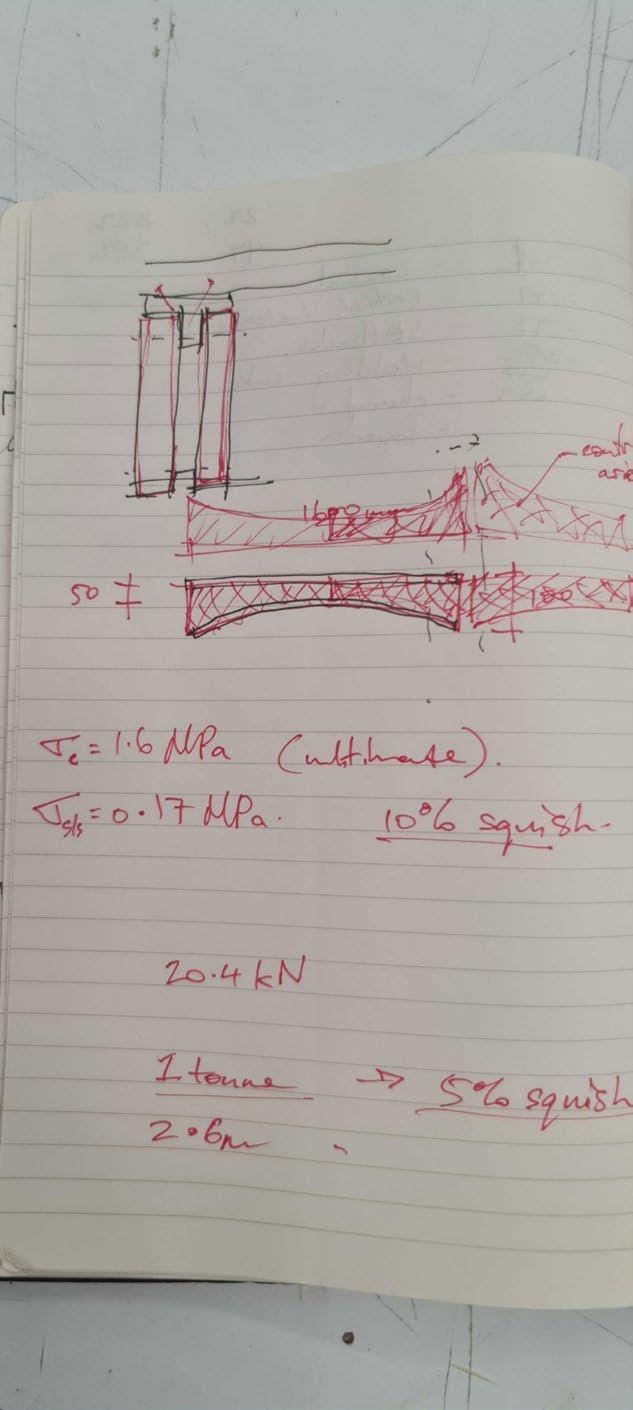 1600mm
50
100
σc = 1.6 MPa (ultimate).
= 0.17 MPa. 10% squish.
20.4 kN
1 tonne → 5% squish
2.6m